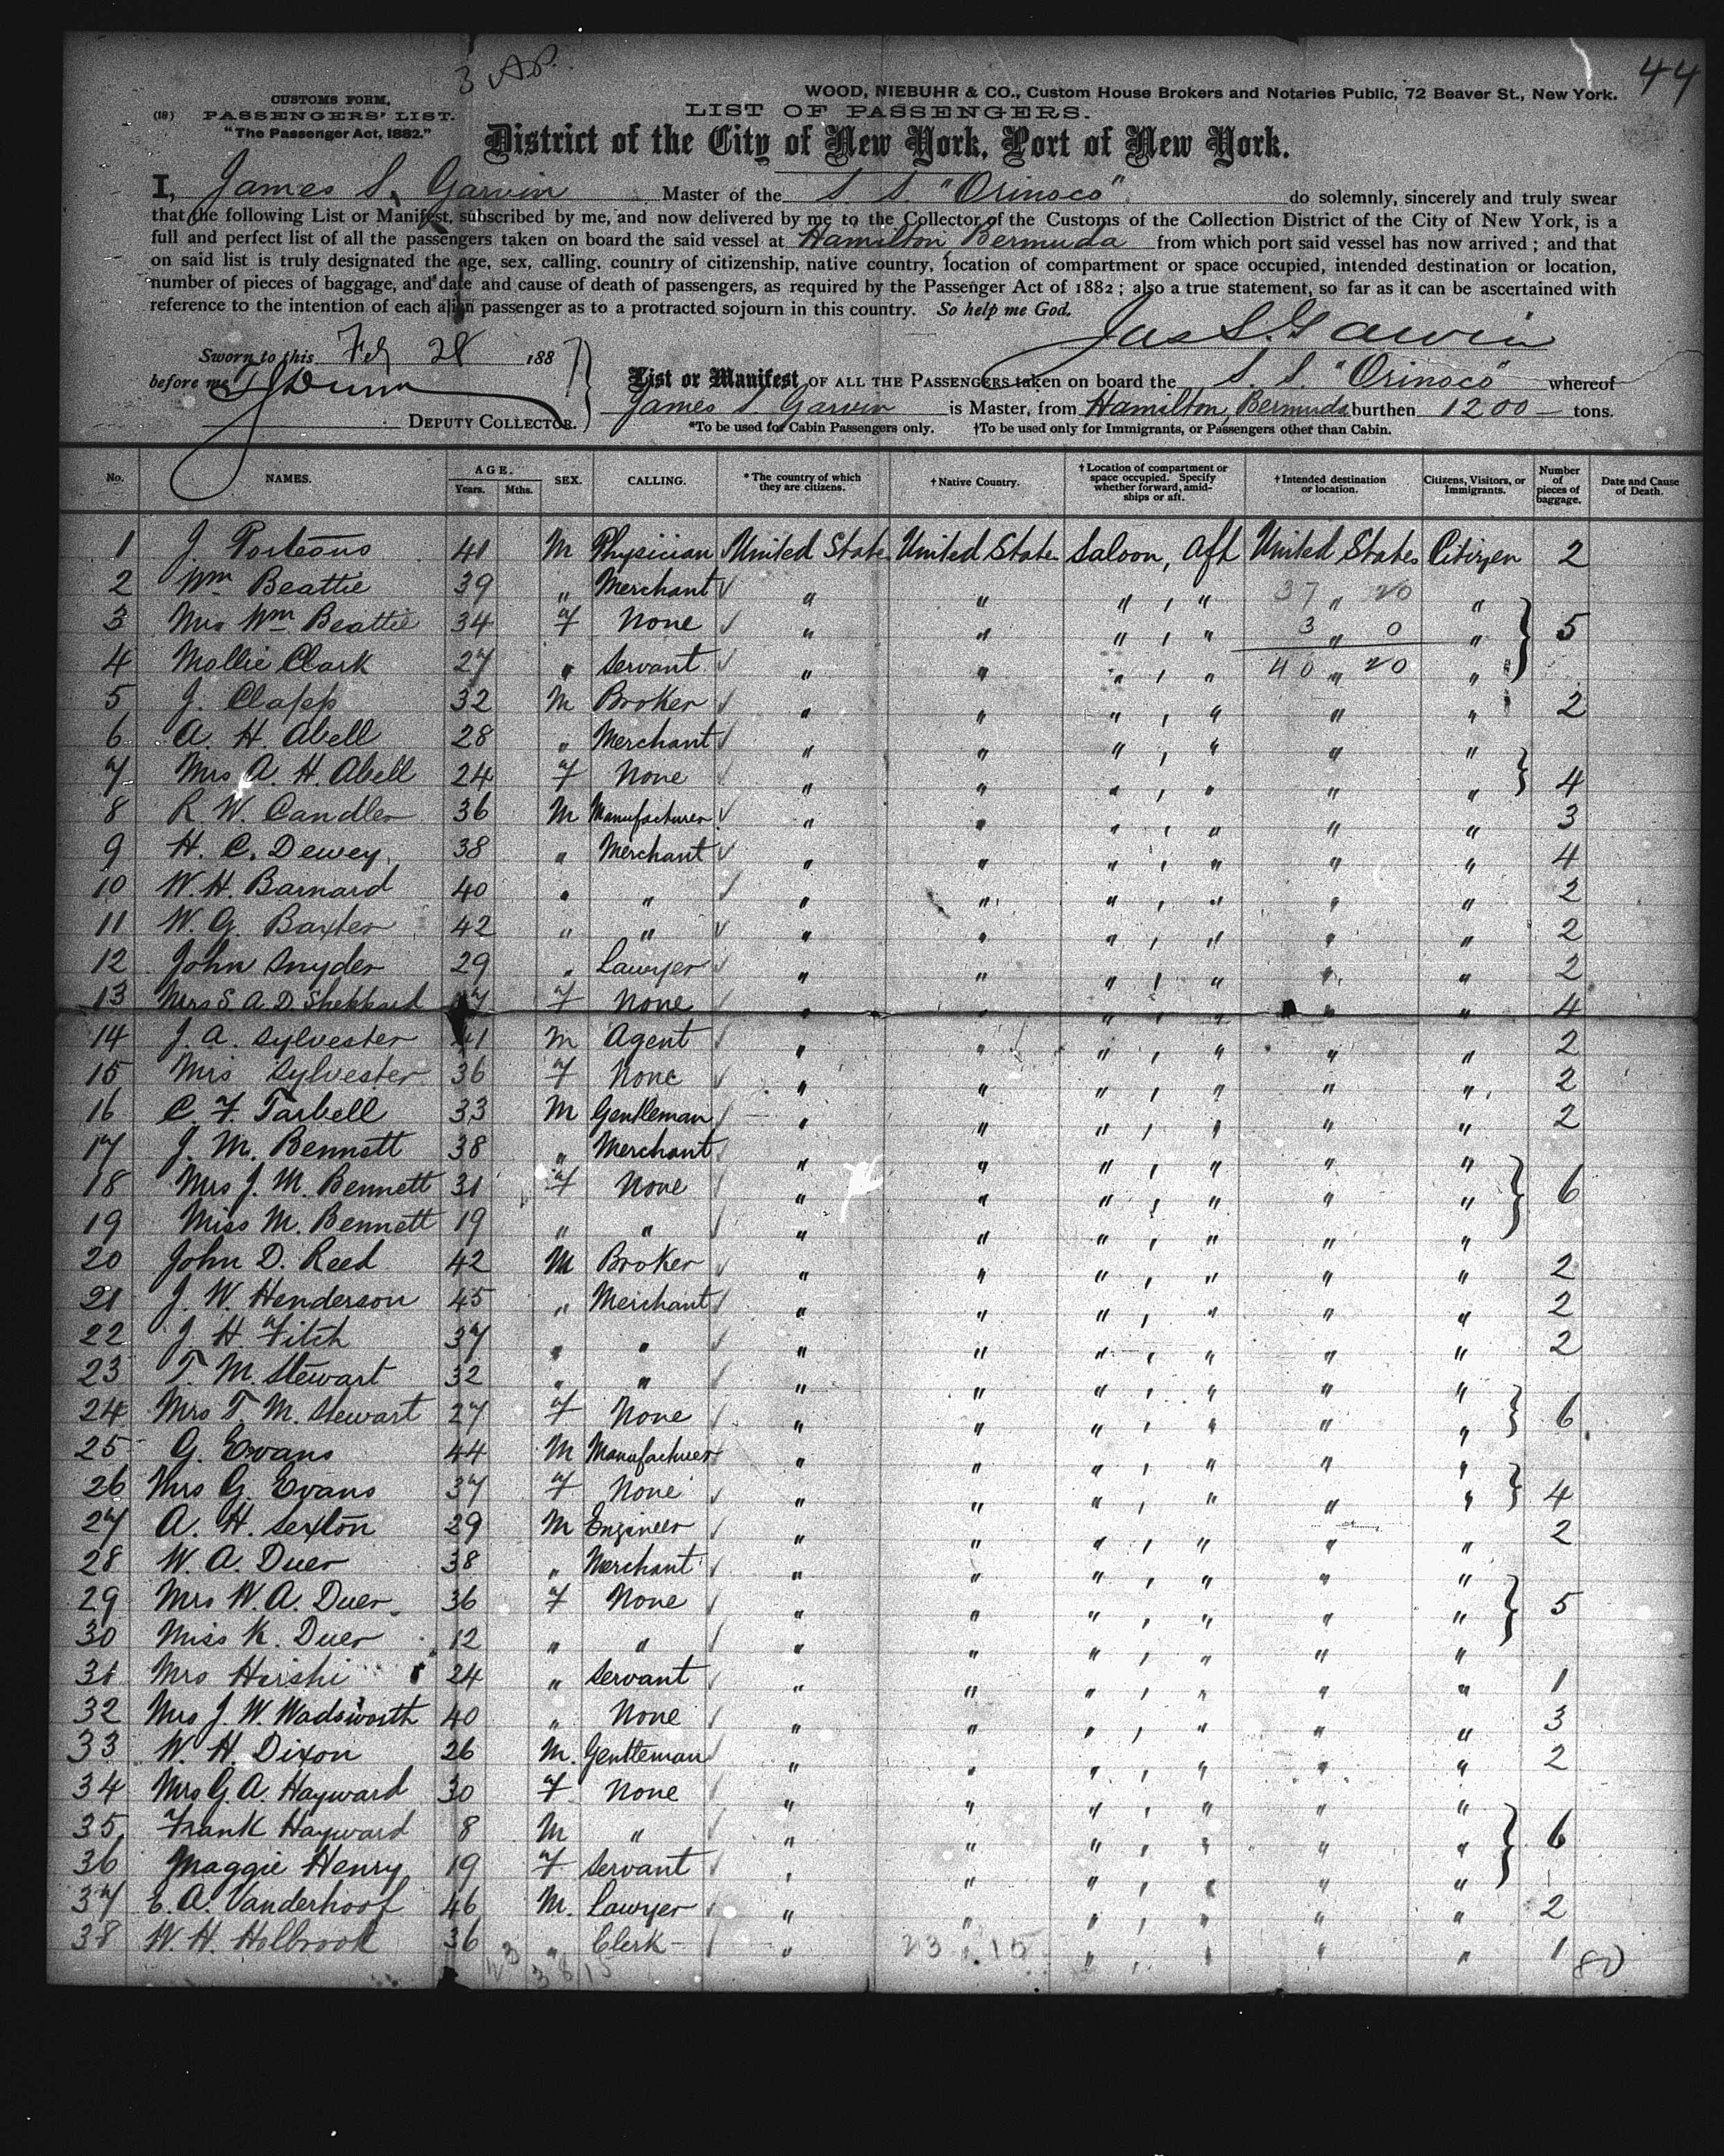 44
3 A.P.
WOOD, NIEBUHR & CO., Custom House Brokers and Notaries Public, 72 Beaver St., New York.
CUSTOMS FORM,
(18) PASSENGERS' LIST.
"The Passenger Act, 1882."
LIST OF PASSENGERS.
District of the City of New York, Port of New York.
I, James S. Garvin Master of the S. S. "Orinoco" do solemnly, sincerely and truly swear
that the following List or Manifest, subscribed by me, and now delivered by me to the Collector of the Customs of the Collection District of the City of New York, is a
full and perfect list of all the passengers taken on board the said vessel at Hamilton, Bermuda from which port said vessel has now arrived; and that
on said list is truly designated the age, sex, calling, country of citizenship, native country, location of compartment or space occupied, intended destination or location,
number of pieces of baggage, and date and cause of death of passengers, as required by the Passenger Act of 1882; also a true statement, so far as it can be ascertained with
reference to the intention of each alien passenger as to a protracted sojourn in this country. So help me God.
Jas S. Garvin
Sworn to this Feb 28 1887
before me Dunn
DEPUTY COLLECTOR.
List or Manifest OF ALL THE PASSENGERS taken on board the S. S. "Orinoco" whereof
James S. Garvin is Master, from Hamilton, Bermuda burthen 1200 — tons.
*To be used for Cabin Passengers only. †To be used only for Immigrants, or Passengers other than Cabin.
No. NAMES. AGE. Years. Mths. SEX. CALLING. *The country of which they are citizens. †Native Country. †Location of compartment or space occupied. Specify whether forward, amidships or aft. †Intended destination or location. Citizens, Visitors, or Immigrants. Number of pieces of baggage. Date and Cause of Death.
1 J. Porteous 41 M Physician United State United State Saloon, Aft United States Citizen 2
2 Wm Beattie 39 " Merchant " " " , " 37 " 20 "
3 Mrs Wm Beattie 34 F None " " " , " 3 " 0 " 5
4 Mollie Clark 27 " Servant " " " , " 40 " 20 "
5 J. Clapp 32 M Broker " " " , " " " 2
6 A. H. Abell 28 " Merchant " " " , " " "
7 Mrs A. H. Abell 24 F None " " " , " " " 4
8 R. W. Candler 36 M Manufacturer " " " , " " " 3
9 H. C. Dewey 38 " Merchant " " " , " " " 4
10 W. H. Barnard 40 " " " " " , " " " 2
11 W. G. Baxter 42 " " " " " , " " " 2
12 John Snyder 29 " Lawyer " " " , " " " 2
13 Mrs S. A. D. Sheppard F None " " " , " " " 4
14 J. A. Sylvester 41 M Agent " " " , " " " 2
15 Mrs Sylvester 36 F None " " " , " " " 2
16 C. F. Tarbell 33 M Gentleman " " " , " " " 2
17 J. M. Bennett 38 " Merchant " " " , " " "
18 Mrs J. M. Bennett 31 F None " " " , " " " 6
19 Miss M. Bennett 19 " " " " " , " " "
20 John D. Reed 42 M Broker " " " , " " " 2
21 J. W. Henderson 45 " Merchant " " " , " " " 2
22 J. H. Fitch 37 " " " " " , " " " 2
23 T. M. Stewart 32 " " " " " , " " "
24 Mrs T. M. Stewart 27 F None " " " , " " " 6
25 G. Evans 44 M Manufacturer " " " , " " "
26 Mrs G. Evans 37 F None " " " , " " " 4
27 A. H. Sexton 29 M Engineer " " " , " " " 2
28 W. A. Duer 38 " Merchant " " " , " " "
29 Mrs W. A. Duer 36 F None " " " , " " " 5
30 Miss K. Duer 12 " " " " " , " " "
31 Mrs Hershi 24 " Servant " " " , " " " 1
32 Mrs J. W. Wadsworth 40 " None " " " , " " " 3
33 W. H. Dixon 26 M. Gentleman " " " , " " " 2
34 Mrs G. A. Hayward 30 F None " " " , " " "
35 Frank Hayward 8 M " " " " , " " " 6
36 Maggie Henry 19 F Servant " " " , " " "
37 E. A. Vanderhoof 46 M. Lawyer " " " , " " " 2
38 W. H. Holbrook 36 " Clerk — " 23 " 15 " , " " " 1
80
23 38/15